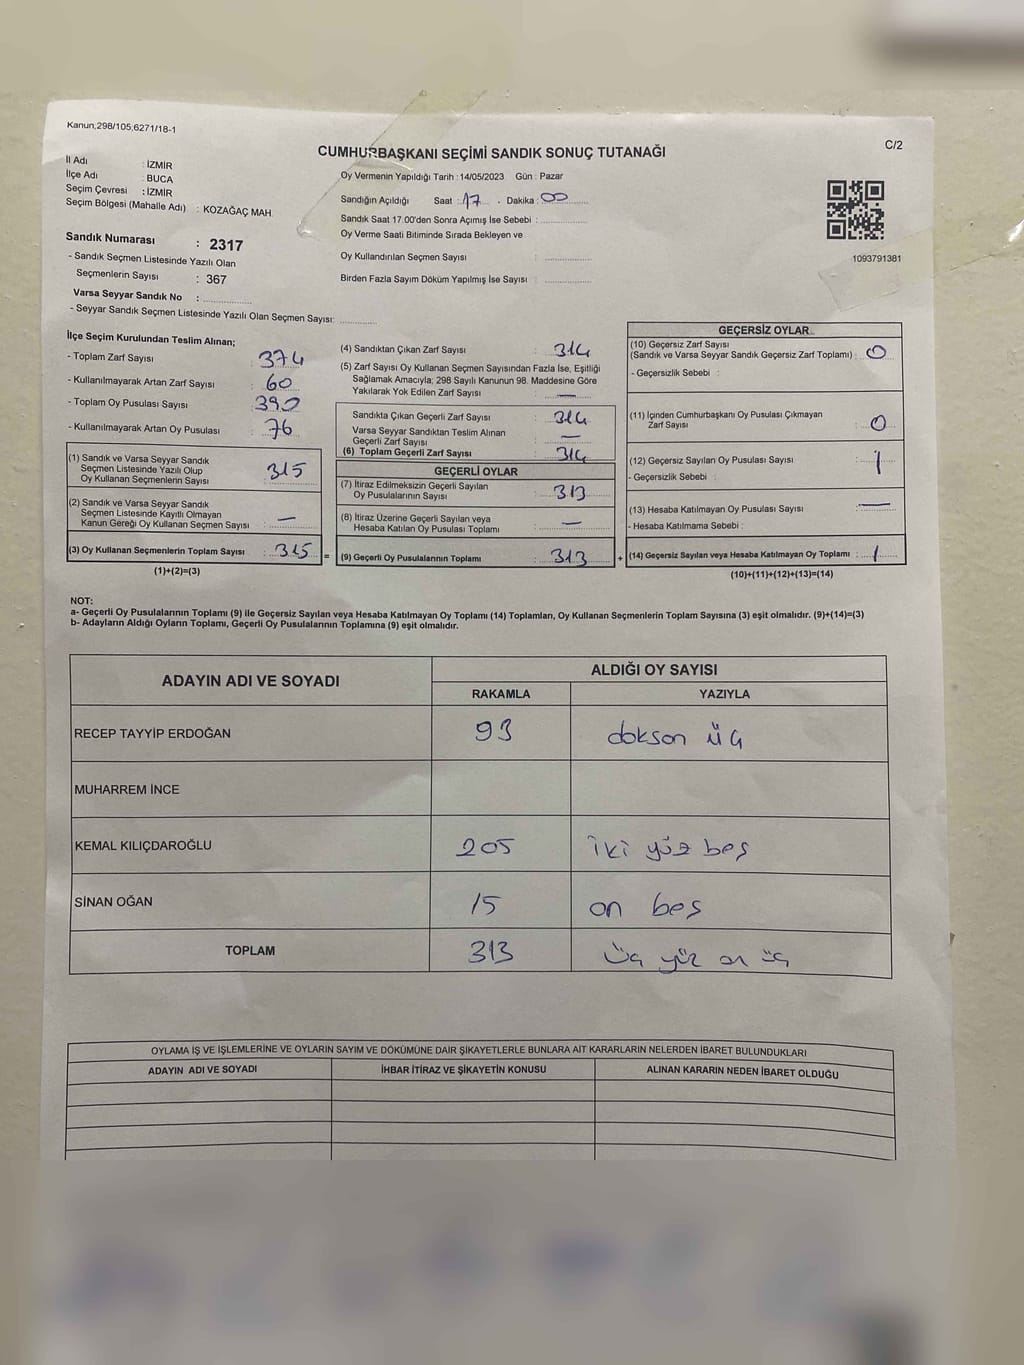 Kanun;298/105;6271/18-1
C/2
CUMHURBAŞKANI SEÇİMİ SANDIK SONUÇ TUTANAĞI
İl Adı : İZMİR
İlçe Adı : BUCA
Seçim Çevresi : İZMİR
Seçim Bölgesi (Mahalle Adı) : KOZAĞAÇ MAH
Sandık Numarası : 2317
- Sandık Seçmen Listesinde Yazılı Olan
Seçmenlerin Sayısı : 367
Varsa Seyyar Sandık No :
- Seyyar Sandık Seçmen Listesinde Yazılı Olan Seçmen Sayısı:
Oy Vermenin Yapıldığı Tarih : 14/05/2023 Gün : Pazar
Sandığın Açıldığı Saat : 17 . Dakika : 00
Sandık Saat 17.00'den Sonra Açımış İse Sebebi :
Oy Verme Saati Bitiminde Sırada Bekleyen ve
Oy Kullandırılan Seçmen Sayısı :
Birden Fazla Sayım Döküm Yapılmış İse Sayısı :
1093791381
İlçe Seçim Kurulundan Teslim Alınan;
- Toplam Zarf Sayısı : 374
- Kullanılmayarak Artan Zarf Sayısı : 60
- Toplam Oy Pusulası Sayısı : 390
- Kullanılmayarak Artan Oy Pusulası : 76
(1) Sandık ve Varsa Seyyar Sandık
Seçmen Listesinde Yazılı Olup
Oy Kullanan Seçmenlerin Sayısı : 315
(2) Sandık ve Varsa Seyyar Sandık
Seçmen Listesinde Kayıtlı Olmayan
Kanun Gereği Oy Kullanan Seçmen Sayısı : —
(3) Oy Kullanan Seçmenlerin Toplam Sayısı : 315 =
(1)+(2)=(3)
(4) Sandıktan Çıkan Zarf Sayısı : 314
(5) Zarf Sayısı Oy Kullanan Seçmen Sayısından Fazla İse, Eşitliği
Sağlamak Amacıyla; 298 Sayılı Kanunun 98. Maddesine Göre
Yakılarak Yok Edilen Zarf Sayısı : —
Sandıkta Çıkan Geçerli Zarf Sayısı : 314
Varsa Seyyar Sandıktan Teslim Alınan
Geçerli Zarf Sayısı : —
(6) Toplam Geçerli Zarf Sayısı : 314
GEÇERLİ OYLAR
(7) İtiraz Edilmeksizin Geçerli Sayılan
Oy Pusulalarının Sayısı : 313
(8) İtiraz Üzerine Geçerli Sayılan veya
Hesaba Katılan Oy Pusulası Toplamı : —
(9) Geçerli Oy Pusulalarının Toplamı : 313 +
GEÇERSİZ OYLAR
(10) Geçersiz Zarf Sayısı
(Sandık ve Varsa Seyyar Sandık Geçersiz Zarf Toplamı) : 0
- Geçersizlik Sebebi :
(11) İçinden Cumhurbaşkanı Oy Pusulası Çıkmayan
Zarf Sayısı : 0
(12) Geçersiz Sayılan Oy Pusulası Sayısı : 1
- Geçersizlik Sebebi :
(13) Hesaba Katılmayan Oy Pusulası Sayısı : —
- Hesaba Katılmama Sebebi :
(14) Geçersiz Sayılan veya Hesaba Katılmayan Oy Toplamı : 1
(10)+(11)+(12)+(13)=(14)
NOT:
a- Geçerli Oy Pusulalarının Toplamı (9) ile Geçersiz Sayılan veya Hesaba Katılmayan Oy Toplamı (14) Toplamları, Oy Kullanan Seçmenlerin Toplam Sayısına (3) eşit olmalıdır. (9)+(14)=(3)
b- Adayların Aldığı Oyların Toplamı, Geçerli Oy Pusulalarının Toplamına (9) eşit olmalıdır.
ADAYIN ADI VE SOYADI
ALDIĞI OY SAYISI
RAKAMLA YAZIYLA
RECEP TAYYİP ERDOĞAN 93 dokson üç
MUHARREM İNCE
KEMAL KILIÇDAROĞLU 205 iki yüz beş
SİNAN OĞAN 15 on beş
TOPLAM 313 üç yüz on üç
OYLAMA İŞ VE İŞLEMLERİNE VE OYLARIN SAYIM VE DÖKÜMÜNE DAİR ŞİKAYETLERLE BUNLARA AİT KARARLARIN NELERDEN İBARET BULUNDUKLARI
ADAYIN ADI VE SOYADI İHBAR İTİRAZ VE ŞİKAYETİN KONUSU ALINAN KARARIN NEDEN İBARET OLDUĞU